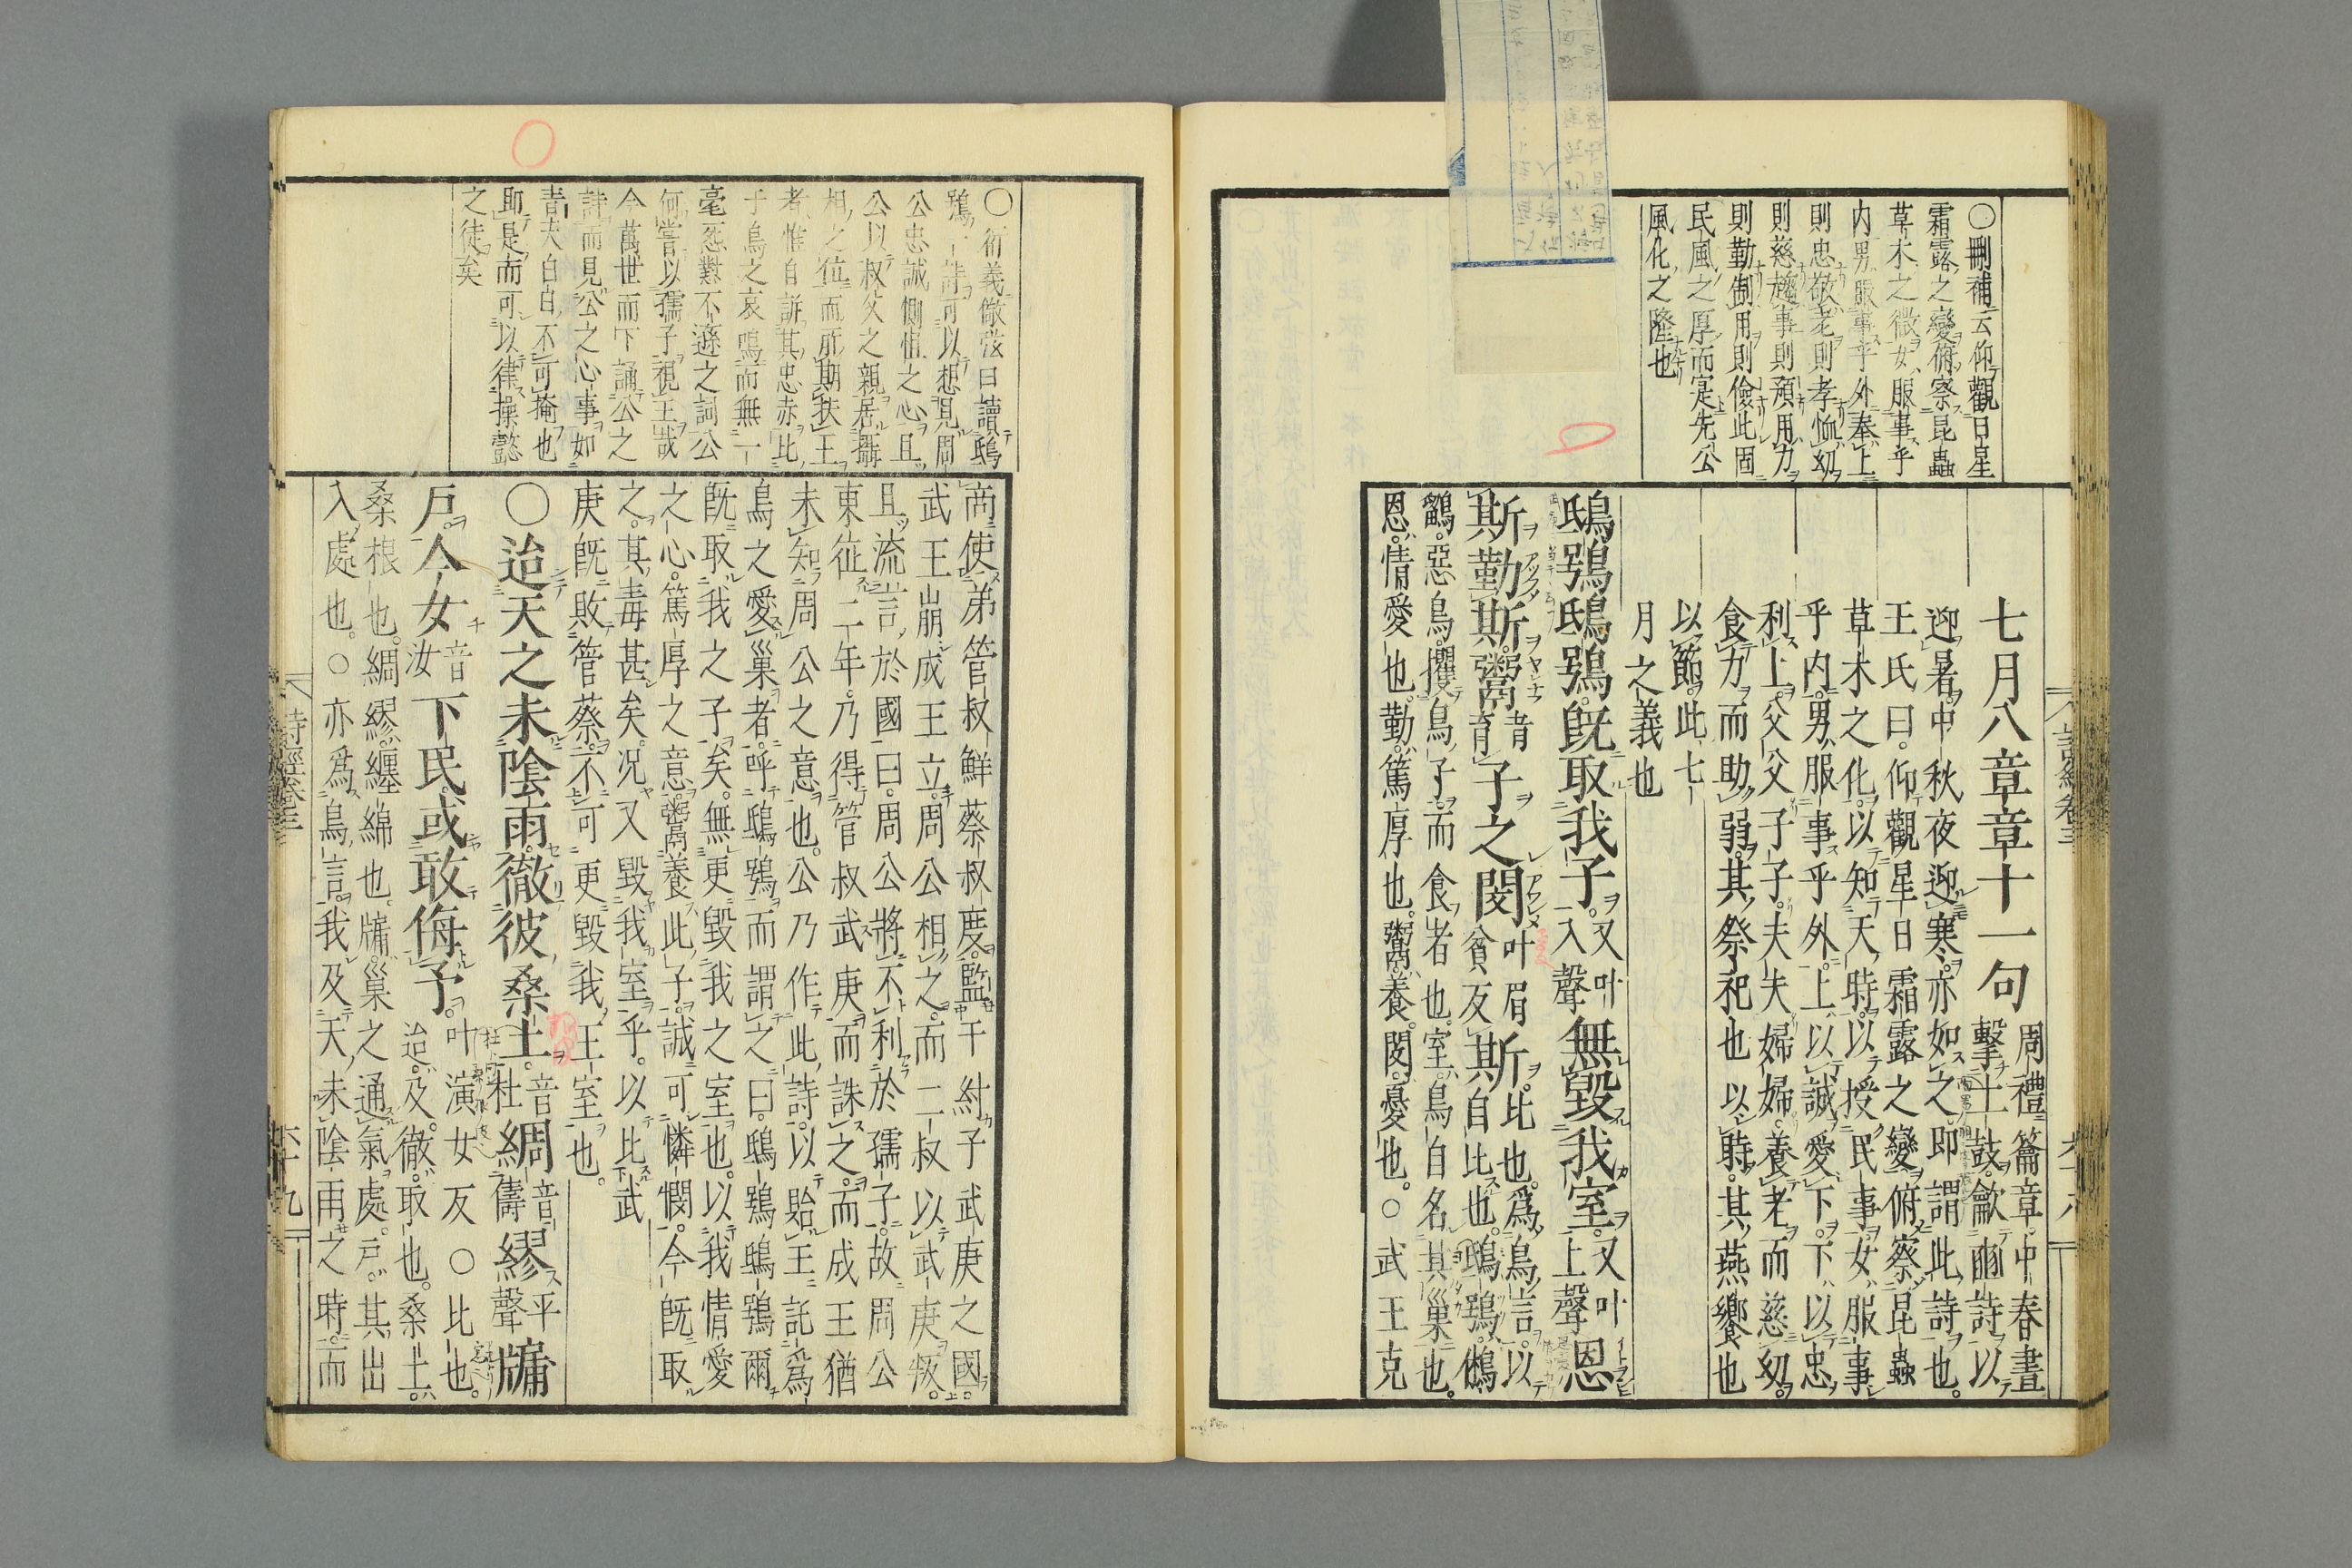 〇刪補云仰觀日星
霜露之變俯察昆蟲
草木之微女服事乎
內男服事乎外奉上
則忠敬老則孝恤幼
則慈趨事則預用力
則勤制用則儉此固
民風之厚而寔先公
風化之隆也
七月八章章十一句 周禮籥章中春晝擊土鼓龡豳詩以
迎暑中秋夜迎寒亦如之即謂此詩也
王氏曰仰觀星日霜露之變俯察昆蟲
草木之化以知天時以授民事女服事
乎内男服事乎外上以誠愛下下以忠
利上父父子子夫夫婦婦養老而慈幼
食力而助弱其祭祀也以時其燕饗也
以節此七
月之義也
鴟鴞鴟鴞旣取我子 又叶入聲 無毀我室 又叶上聲 恩
斯勤斯鬻 音育 子之閔 叶眉貧反 斯 比也爲鳥言以自比也鴟鴞鵂
鶹惡鳥攫鳥子而食者也室鳥自名其巢也
恩情愛也勤篤厚也鬻養閔憂也〇武王克
詩經卷三 六十八
〇衍義倣弦曰讀鴟
鴞一詩可以想見周
公忠誠惻怛之心且
公以叔父之親居攝
相之位而所期扶王
者惟自訴其忠赤比
于鳥之哀鳴而無一
毫怨懟不遜之詞公
何嘗以孺子視王哉
今萬世而下誦公之
詩而見公之心事如
青天白白不可掩也
即是而可以律操懿
之徒矣
商使弟管叔鮮蔡叔度監于紂子武庚之國
武王崩成王立周公相之而二叔以武庚叛
且流言於國曰周公將不利於孺子故周公
東征二年乃得管叔武庚而誅之而成王猶
未知周公之意也公乃作此詩以貽王託爲
鳥之愛巢者呼鴟鴞而謂之曰鴟鴞鴟鴞爾
旣取我之子矣無更毀我之室也以我情愛
之心篤厚之意鬻養此子誠可憐憫今旣取
之其毒甚矣况又毀我室乎以比武
庚旣敗管蔡不可更毀我王室也
〇迨天之未陰雨徹彼桑土 音杜 綢 音儔 繆 平聲 牖
戶今女 音汝 下民或敢侮予 叶演女反 〇比也迨及徹取也桑土
桑根也綢繆纏綿也牖巢之通氣處戶其出
入處也〇亦爲鳥言我及天未陰雨之時而
詩經卷三 六十九